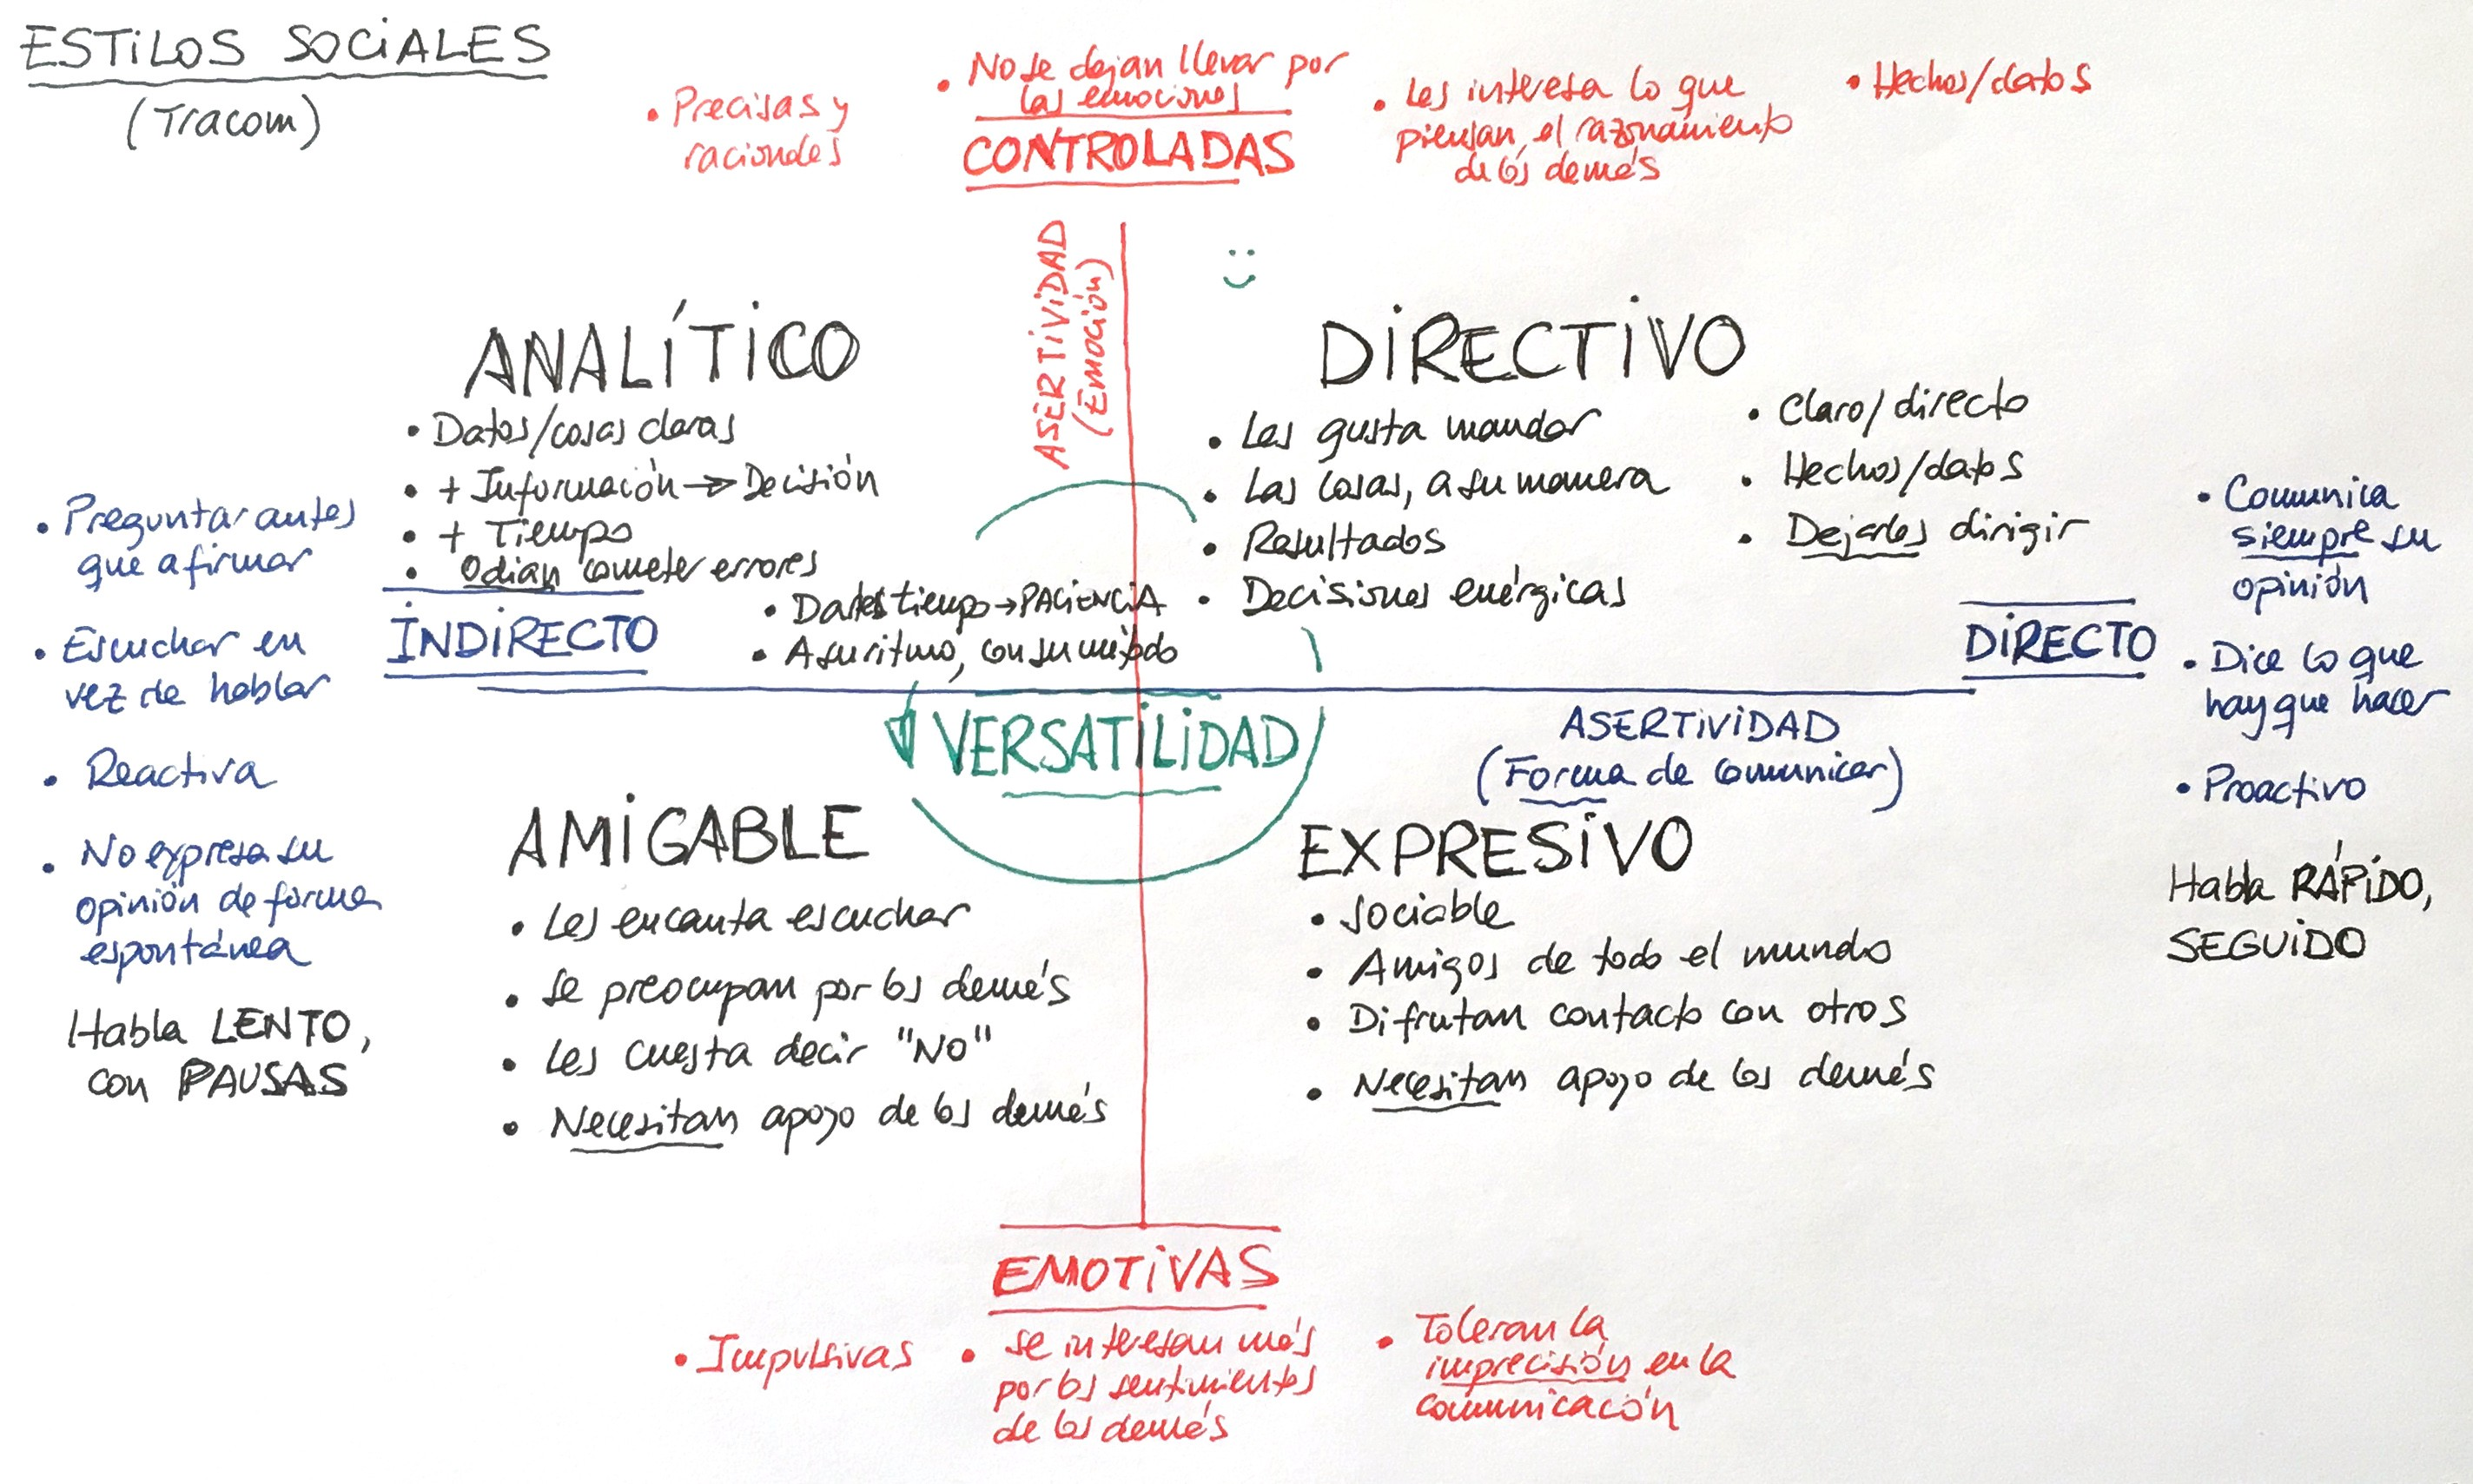 ESTILOS SOCIALES
(Tracom)
• Precisas y
racionales
• No se dejan llevar por
las emociones
CONTROLADAS
• Les interesa lo que
piensan, el razonamiento
de los demás
• Hechos/datos
ASERTIVIDAD
(Emoción)
ANALÍTICO
• Datos/cosas claras
• + Información → Decisión
• + Tiempo
• Odian cometer errores
• Darles tiempo → PACIENCIA
• A su ritmo, con su método
DIRECTIVO
• Les gusta mandar
• Las cosas, a su manera
• Resultados
• Decisiones enérgicas
• Claro/directo
• Hechos/datos
• Dejarles dirigir
• Preguntar antes
que afirmar
• Escuchar en
vez de hablar
• Reactiva
• No expresa su
opinión de forma
espontánea
Habla LENTO,
con PAUSAS
INDIRECTO
DIRECTO
• Comunica
siempre su
opinión
• Dice lo que
hay que hacer
• Proactivo
Habla RÁPIDO,
SEGUIDO
VERSATILIDAD
ASERTIVIDAD
(Forma de comunicar)
AMIGABLE
• Les encanta escuchar
• Se preocupan por los demás
• Les cuesta decir "NO"
• Necesitan apoyo de los demás
EXPRESIVO
• Sociable
• Amigos de todo el mundo
• Difrutan contacto con otros
• Necesitan apoyo de los demás
EMOTIVAS
• Impulsivas
• Se interesan más
por los sentimientos
de los demás
• Toleran la
imprecisión en la
comunicación